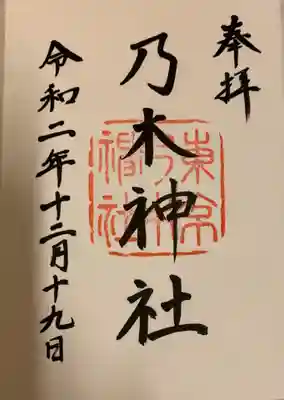 奉拝
乃木神社
令和二年十二月十九日
東京乃木神社